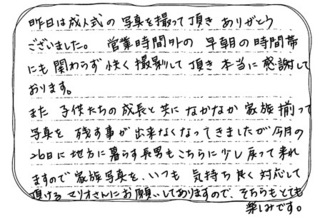 昨日は成人式の写真を撮って頂き ありがとう
ございました。 営業時間外の 早朝の時間帯
にも関わらず 快く撮影して頂き 本当に感謝して
おります。
また 子供たちの成長と共に なかなか 家族揃って
写真を 残す事が 出来なくなってきましたが 今月の
26日に 地方に 暮らす長男も こちらに 少し 戻って 来れ
ますので 家族写真を、いつも 気持ち良く 対応して
頂ける マリオさんに お願いしてありますので、そちらも とても
楽しみです。